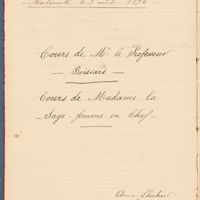 Maternité, le 3 août 1894
Cours de Mr le Professeur
Boissard
Cours de Madame la
Sage-femme en Chef